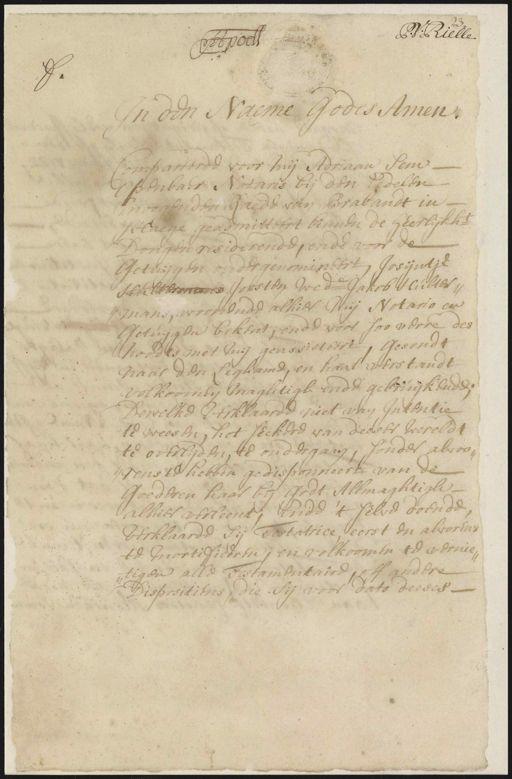 23
N: Rielle
In den Naeme Godes Amen.
Compareerde voor mij Adriaan
Notaris bij den Edelen
Raede van Brabandt in
geadmitteert binnen de Heerlijkht
Dongen residerende, ende voor de
Getuijgen ondergenomineert, Josijntje
Joosten Wede Jacob
mans, woonende alhier mij Notario en
Getuijgen bekent, ende voor soo verre des
noodts met mij geassisteert, gesondt
naar den Lighame, en haar verstandt
volkoomen maghtigh ende gebruijkende,
Dewelke verklaarde niet van Intentie
te weesen, het seekere van deese wereldt
te overlijden, te ondergaen, sonder alvoo-
rens te hebben gedisponeert van de
Goederen haar bij Godt Allmaghtigh
alhier verleent, Ende 't selve doende,
verklaarde sij Testatrice eerst en alvorens
te mortificeren, en volkoomen te vernie-
tigen alle Testamentaire, off andere
Dispositiens, die sij voor dato deeses